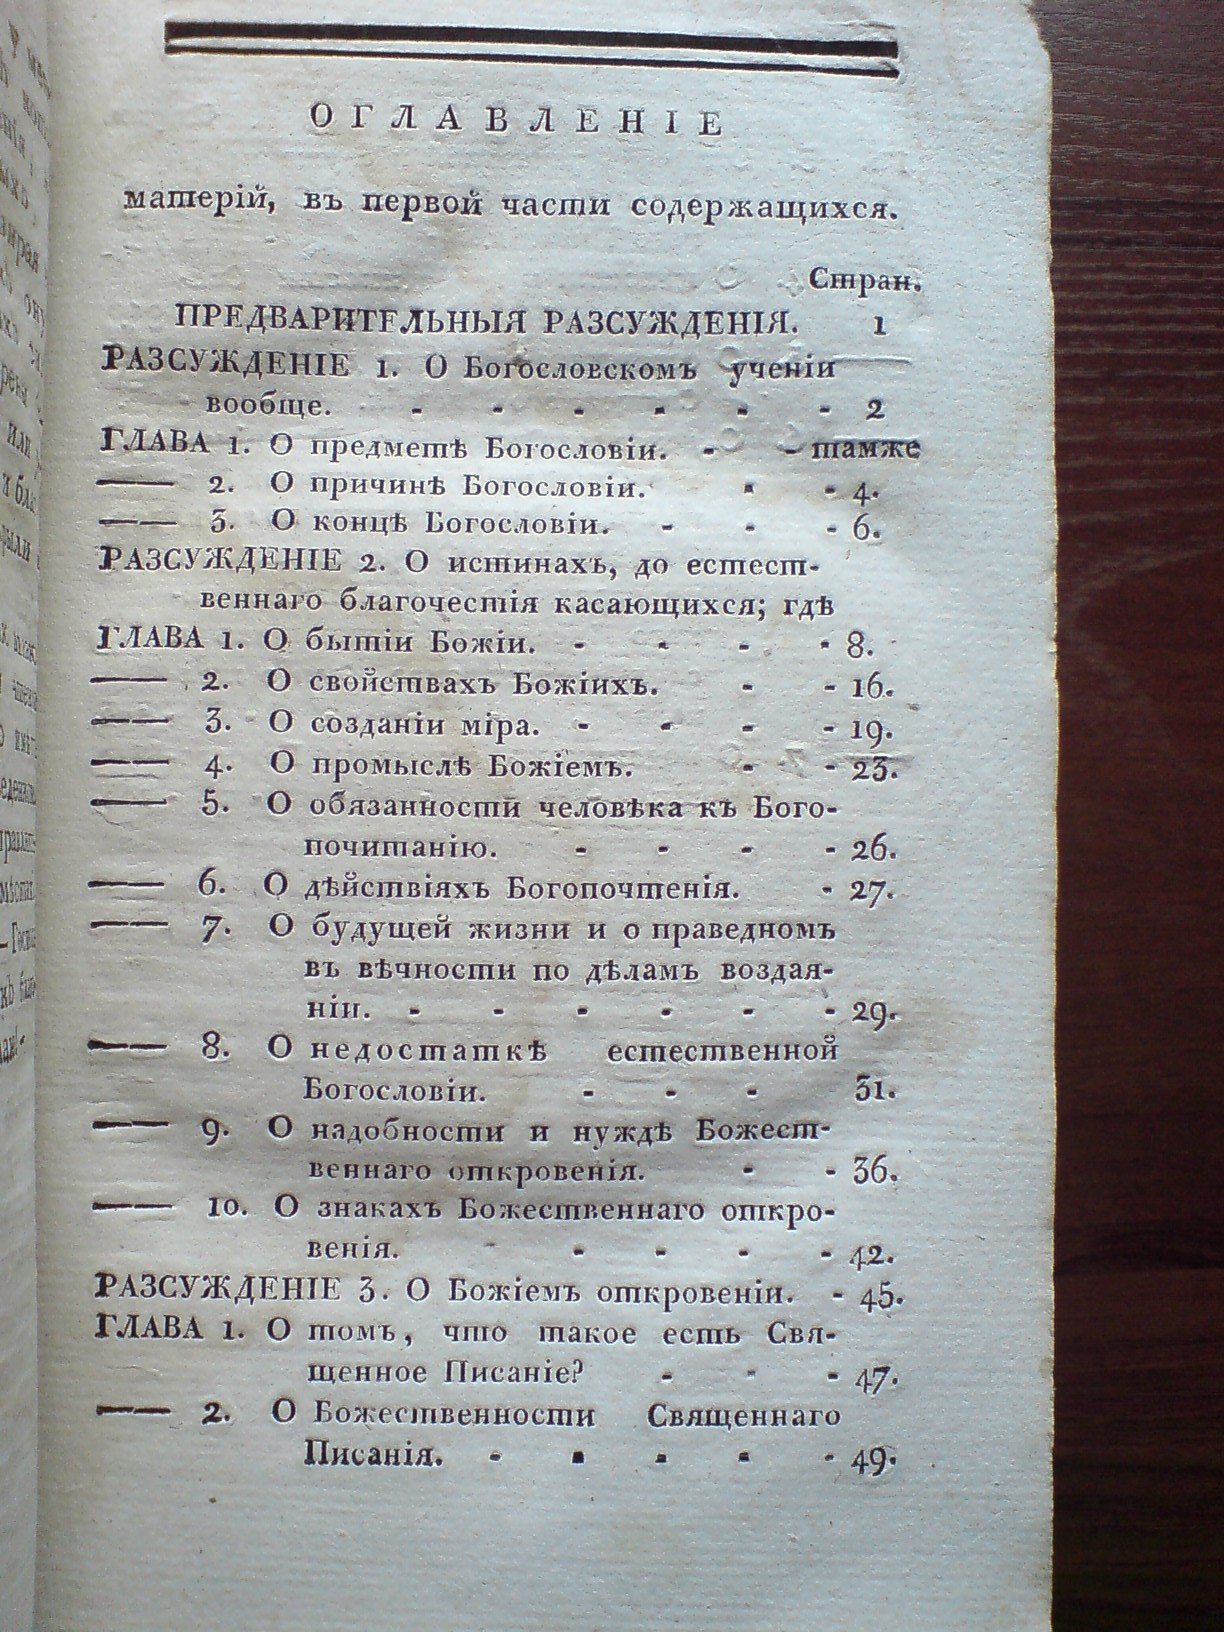 ОГЛАВЛЕНІЕ
матерій, въ первой части содержащихся.
Стран.
ПРЕДВАРИТЕЛЬНЫЯ РАЗСУЖДЕНІЯ. 1
РАЗСУЖДЕНІЕ 1. О Богословскомъ ученіи
вообще. - - - - - - 2
ГЛАВА 1. О предметѣ Богословіи. - - тамже
—— 2. О причинѣ Богословіи. - - 4.
—— 3. О концѣ Богословіи. - - - 6.
РАЗСУЖДЕНІЕ 2. О истинахъ, до естест-
веннаго благочестія касающихся; гдѣ
ГЛАВА 1. О бытіи Божіи. - - - - 8.
—— 2. О свойствахъ Божіихъ. - - 16.
—— 3. О созданіи міра. - - - - 19.
—— 4. О промыслѣ Божіемъ. - - 23.
—— 5. О обязанности человѣка къ Бого-
почитанію. - - - - 26.
—— 6. О дѣйствіяхъ Богопочтенія. - 27.
—— 7. О будущей жизни и о праведномъ
въ вѣчности по дѣламъ воздая-
ніи. - - - - - - 29.
—— 8. О недостаткѣ естественной
Богословіи. - - - 31.
—— 9. О надобности и нуждѣ Божест-
веннаго откровенія. - - 36.
—— 10. О знакахъ Божественнаго откро-
венія. - - - - - 42.
РАЗСУЖДЕНІЕ 3. О Божіемъ откровеніи. - 45.
ГЛАВА 1. О томъ, что такое есть Свя-
щенное Писаніе? - - - 47.
—— 2. О Божественности Священнаго
Писанія. - - - - - 49.